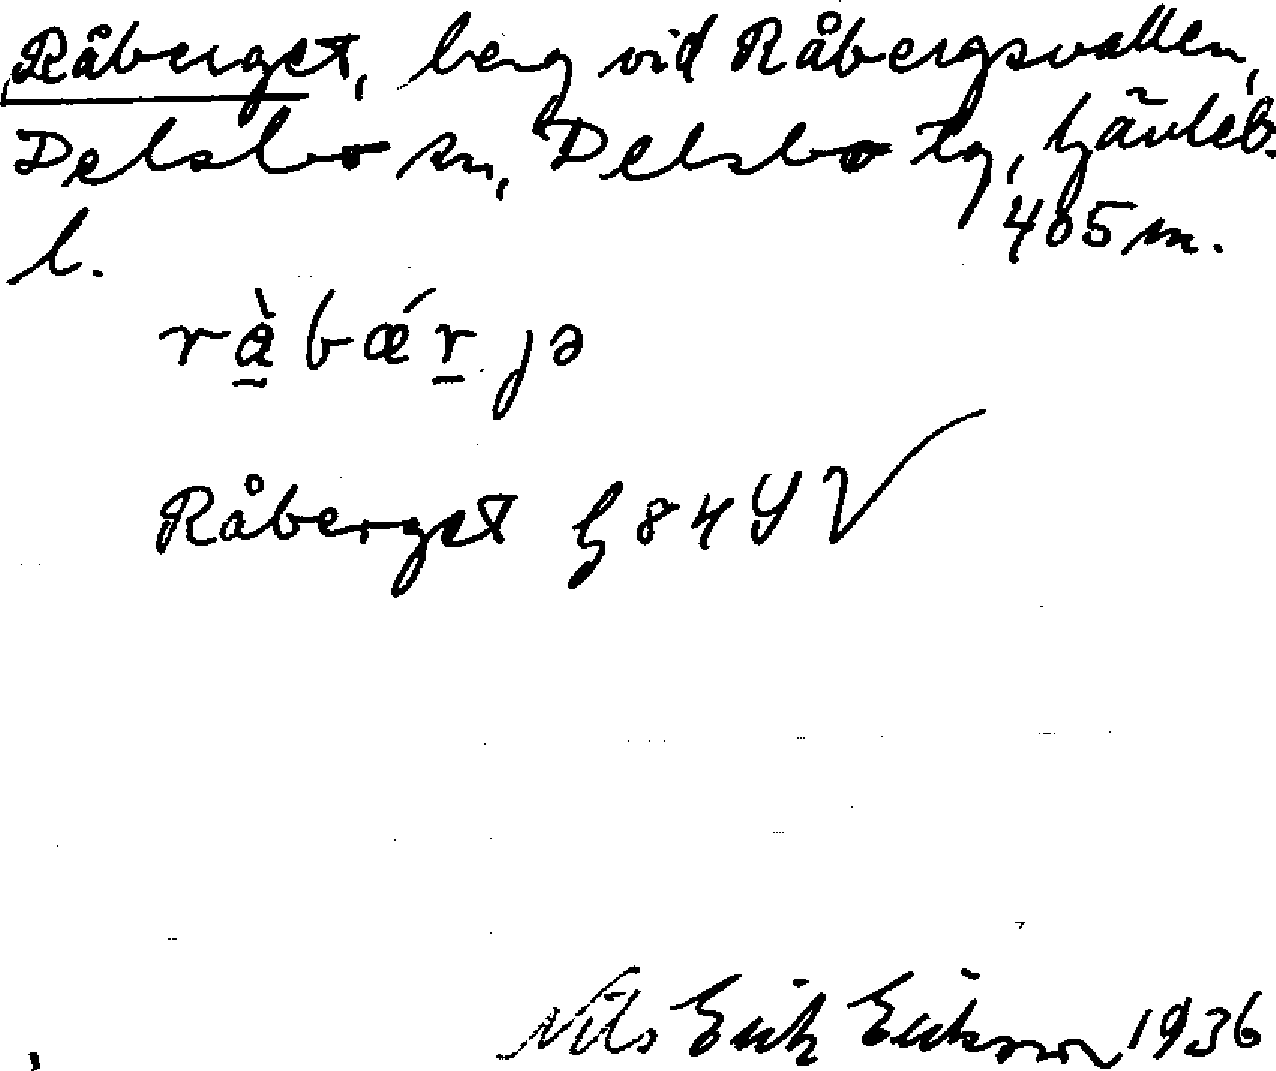 Råberget, berg vid Råbergsvallen,
Delsbo sn, Delsbo tg, Gävleb.
l. 405 m.
rà̱bǽṟjə
Råberget G 84 Y √
Nils Erik Eriksson 1936